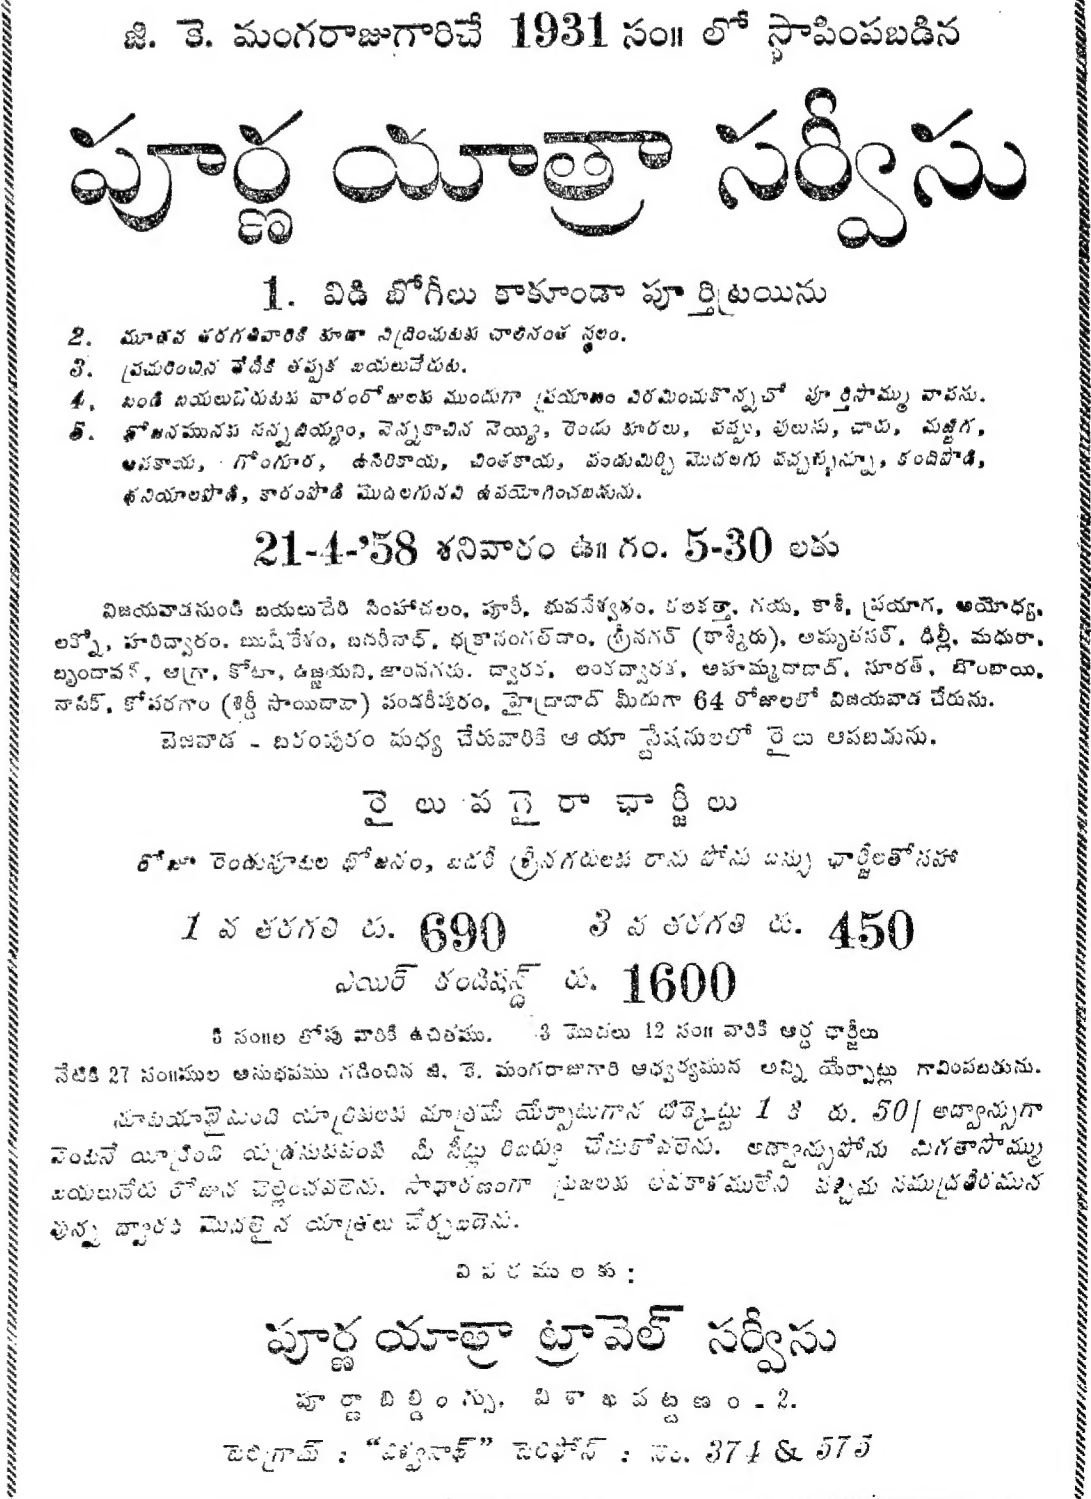 జి. కె. మంగరాజుగారిచే 1931 సం॥ లో స్థాపింపబడిన
పూర్ణ యాత్రా సర్వీసు
1. విడి బోగీలు కాకుండా పూర్తి ట్రయిను
2. మూడవ తరగతివారికి కూడా నిద్రించుటకు చాలినంత స్థలం.
3. ప్రచురించిన తేదీకి తప్పక బయలుదేరుట.
4. బండి బయలుదేరుటకు వారంరోజులకు ముందుగా ప్రయాణం విరమించుకొన్నచో పూర్తిసొమ్ము వాపసు.
5. భోజనమునకు సన్నబియ్యం, వెన్నకాచిన నెయ్యి, రెండు కూరలు, పప్పు, పులుసు, చారు, మజ్జిగ,
ఆవకాయ, గోంగూర, ఉసిరికాయ, చింతకాయ, పండుమిర్చి మొదలగు పచ్చళ్ళున్నూ, కందిపొడి,
ధనియాలపొడి, కారంపొడి మొదలగునవి ఉపయోగించబడును.
21-4-'58 శనివారం ఉ॥ గం. 5-30 లకు
విజయవాడనుండి బయలుదేరి సింహాచలం, పూరీ, భువనేశ్వరం, కలకత్తా, గయ, కాశీ, ప్రయాగ, అయోధ్య,
లక్నో, హరిద్వారం, ఋషికేశం, బదరీనాథ్, భక్రానంగల్‌డాం, శ్రీనగర్ (కాశ్మీరు), అమృతసర్, ఢిల్లీ, మధురా,
బృందావన్, ఆగ్రా, కోటా, ఉజ్జయని, జాంనగరు, ద్వారక, లంకద్వారక, అహమ్మదాబాద్, సూరత్, బొంబాయి,
నాసిక్, కోపరగాం (శిర్డీ సాయిబాబా) పండరీపురం, హైద్రాబాద్ మీదుగా 64 రోజులలో విజయవాడ చేరును.
బెజవాడ - బరంపురం మధ్య చేరువారికి ఆ యా స్టేషనులలో రైలు ఆపబడును.
రైలు వగైరా ఛార్జీలు
రోజూ రెండుపూటల భోజనం, బదరీ శ్రీనగరులకు రాను పోను బస్సు ఛార్జీలతోసహా
1 వ తరగతి రు. 690 3 వ తరగతి రు. 450
ఎయిర్ కండిషన్డ్ రు. 1600
3 సం॥ల లోపు వారికి ఉచితము. 3 మొదలు 12 సం॥ వారికి అర్ధ ఛార్జీలు
నేటికి 27 సం॥ముల అనుభవము గడించిన జి. కె. మంగరాజుగారి ఆధ్వర్యమున అన్ని యేర్పాట్లు గావింపబడును.
యాత్రికులకు మాత్రమే యేర్పాటుగాన టిక్కెట్టు 1 కి రు. 50/ అడ్వాన్సుగా
వెంటనే యీక్రింది యడ్రసుకుపంపి మీ సీట్లు రిజర్వు చేసుకోవలెను. అడ్వాన్సుపోను మిగతాసొమ్ము
బయలుదేరు రోజున చెల్లించవలెను. సాధారణంగా ప్రజలకు అవకాశములేని పశ్చిమ సముద్రతీరమున
వున్న ద్వారక మొదలైన యాత్రలు చేర్చబడెను.
వివరములకు :
పూర్ణ యాత్రా ట్రావెల్ సర్వీసు
పూర్ణా బిల్డింగ్సు, విశాఖపట్టణం - 2.
టెలిగ్రామ్ : “విశ్వనాథ్” టెలిఫోన్ : నెం. 374 & 575